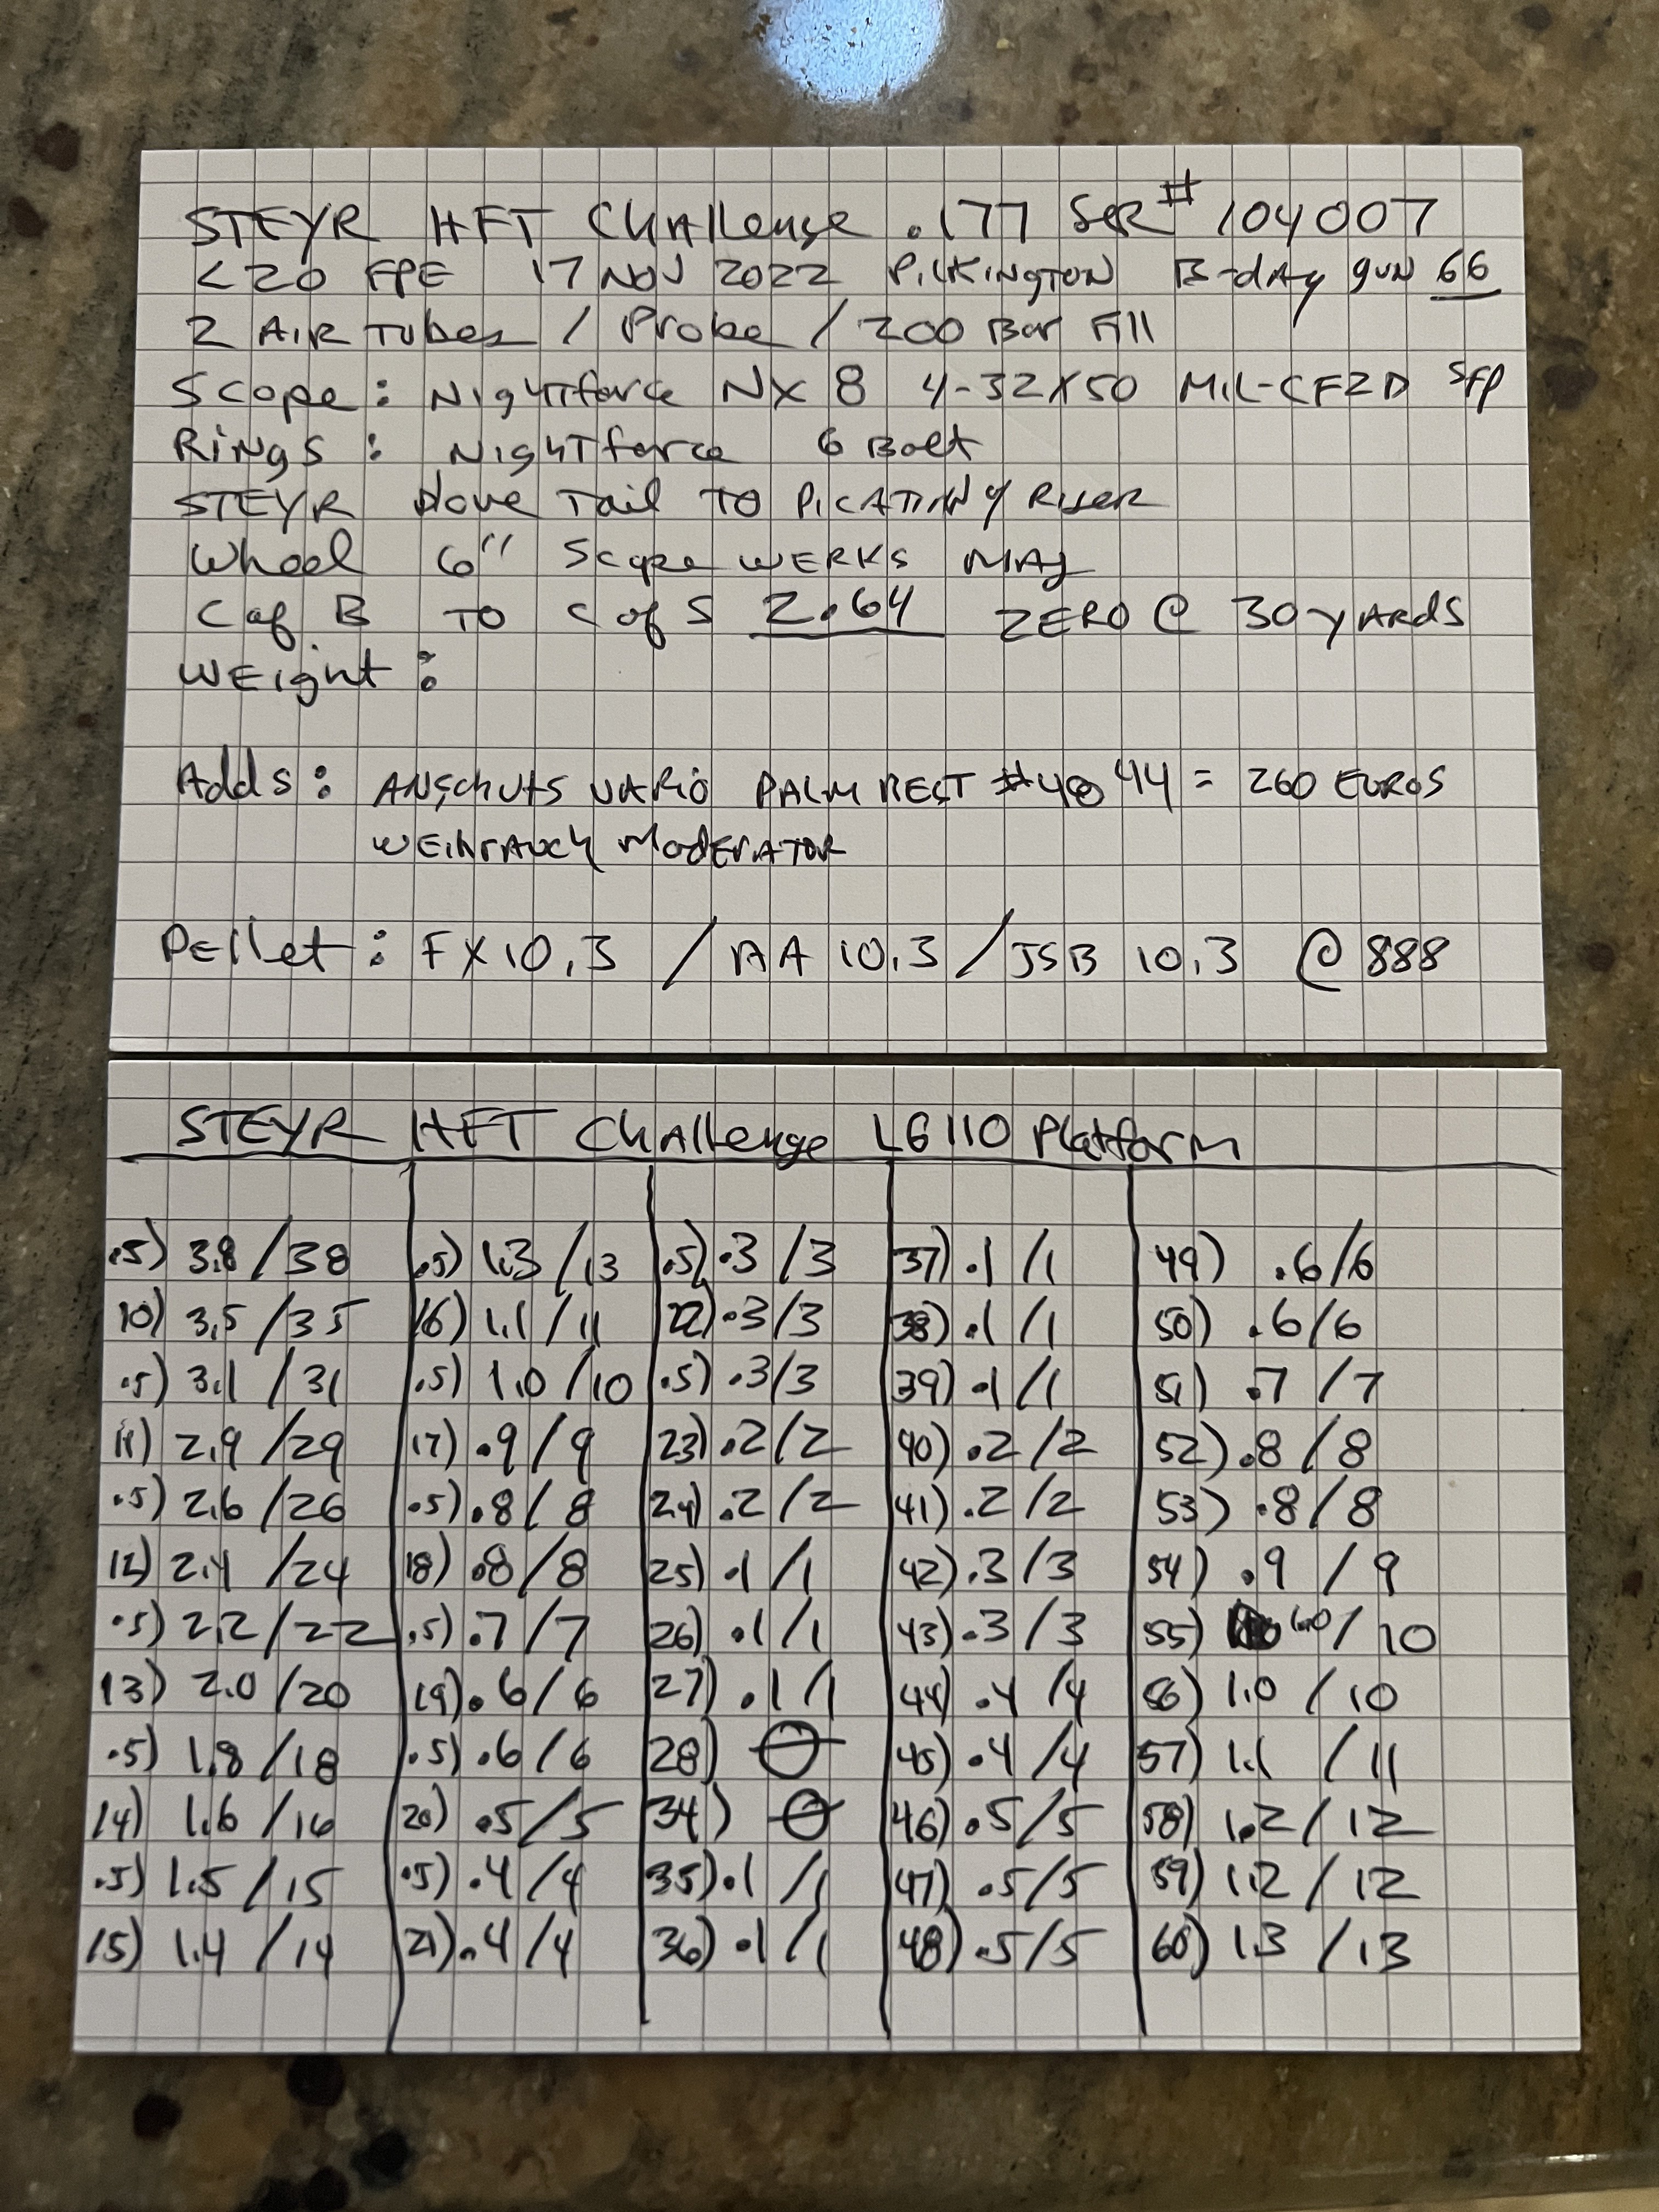 STEYR HFT Challenge .177 SER# 104007
<20 FPE 17 NOV 2022 PILKINGTON B-dAy gUN 66
2 AIR TUbes / Probe / 200 Bar Fill
Scope: NightForce NX 8 4-32X50 MIL-CF2D SFP
RiNgS: NightForce 6 Bolt
STEYR dove Tail TO PICATINNY RISER
Wheel 6" Scope WERKS MAg
C of B TO C of S 2.64 ZERO @ 30 yARdS
WEight:
Adds: ANSchUtS VARiO PALM REST #4844 = 260 EUROS
WEihrAuch ModERATOR
PEllet: FX 10.3 / AA 10.3 / JSB 10.3 @ 888
STEYR HFT ChAllenge LG110 PlatforM
.5) 3.8 / 38 .5) 1.3 / 13 .5) .3 / 3 37) .1 / 1 49) .6/6
10) 3.5 / 35 16) 1.1 / 11 22) .3/3 38) .1 / 1 50) .6/6
.5) 3.1 / 31 .5) 1.0 / 10 .5) .3/3 39) .1 / 1 51) .7 / 7
11) 2.9 / 29 17) .9 / 9 23) .2 / 2 40) .2 / 2 52) .8 / 8
.5) 2.6 / 26 .5) .8 / 8 24) .2 / 2 41) .2 / 2 53) .8 / 8
12) 2.4 / 24 18) .8 / 8 25) .1 / 1 42) .3 / 3 54) .9 / 9
.5) 2.2 / 22 .5) .7 / 7 26) .1 / 1 43) .3 / 3 55) 1.0 / 10
13) 2.0 / 20 19) .6 / 6 27) .1 / 1 44) .4 / 4 56) 1.0 / 10
.5) 1.8 / 18 .5) .6 / 6 28) 0 45) .4 / 4 57) 1.1 / 11
14) 1.6 / 16 20) .5 / 5 34) 0 46) .5 / 5 58) 1.2 / 12
.5) 1.5 / 15 .5) .4 / 4 35) .1 / 1 47) .5/5 59) 1.2 / 12
15) 1.4 / 14 21) .4 / 4 36) .1 / 1 48) .5/5 60) 1.3 / 13